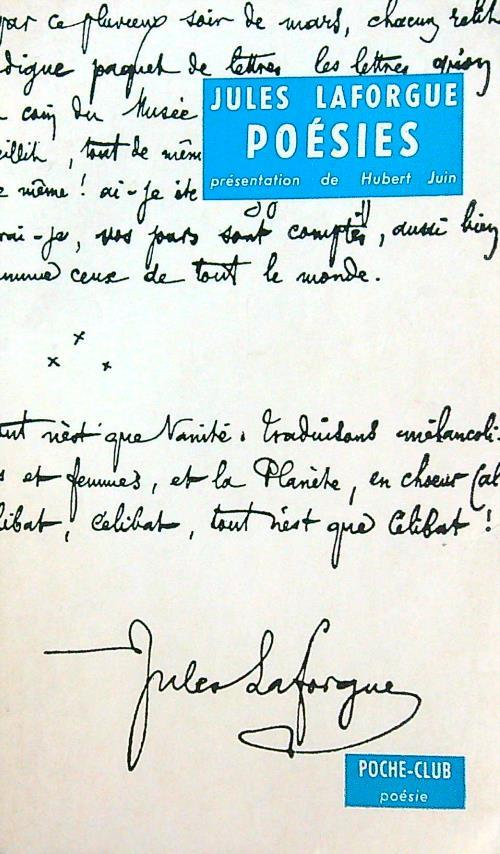 par ce pluvieux soir de mars, chacun relit
digne paquet de lettres les lettres qu'on
coin du Musée
JULES LAFORGUE
POÉSIES
présentation de Hubert Juin
eillit, tout de mêm
même ! ai-je été
rai-je, vos jours sont comptés, aussi bien
comme ceux de tout le monde.
x
x x
out n'est que Vanité. Traduisons mélancoli-
s et femmes, et la Planète, en chœur (al
libat, célibat, tout n'est que Célibat !
Jules Laforgue
POCHE-CLUB
poésie